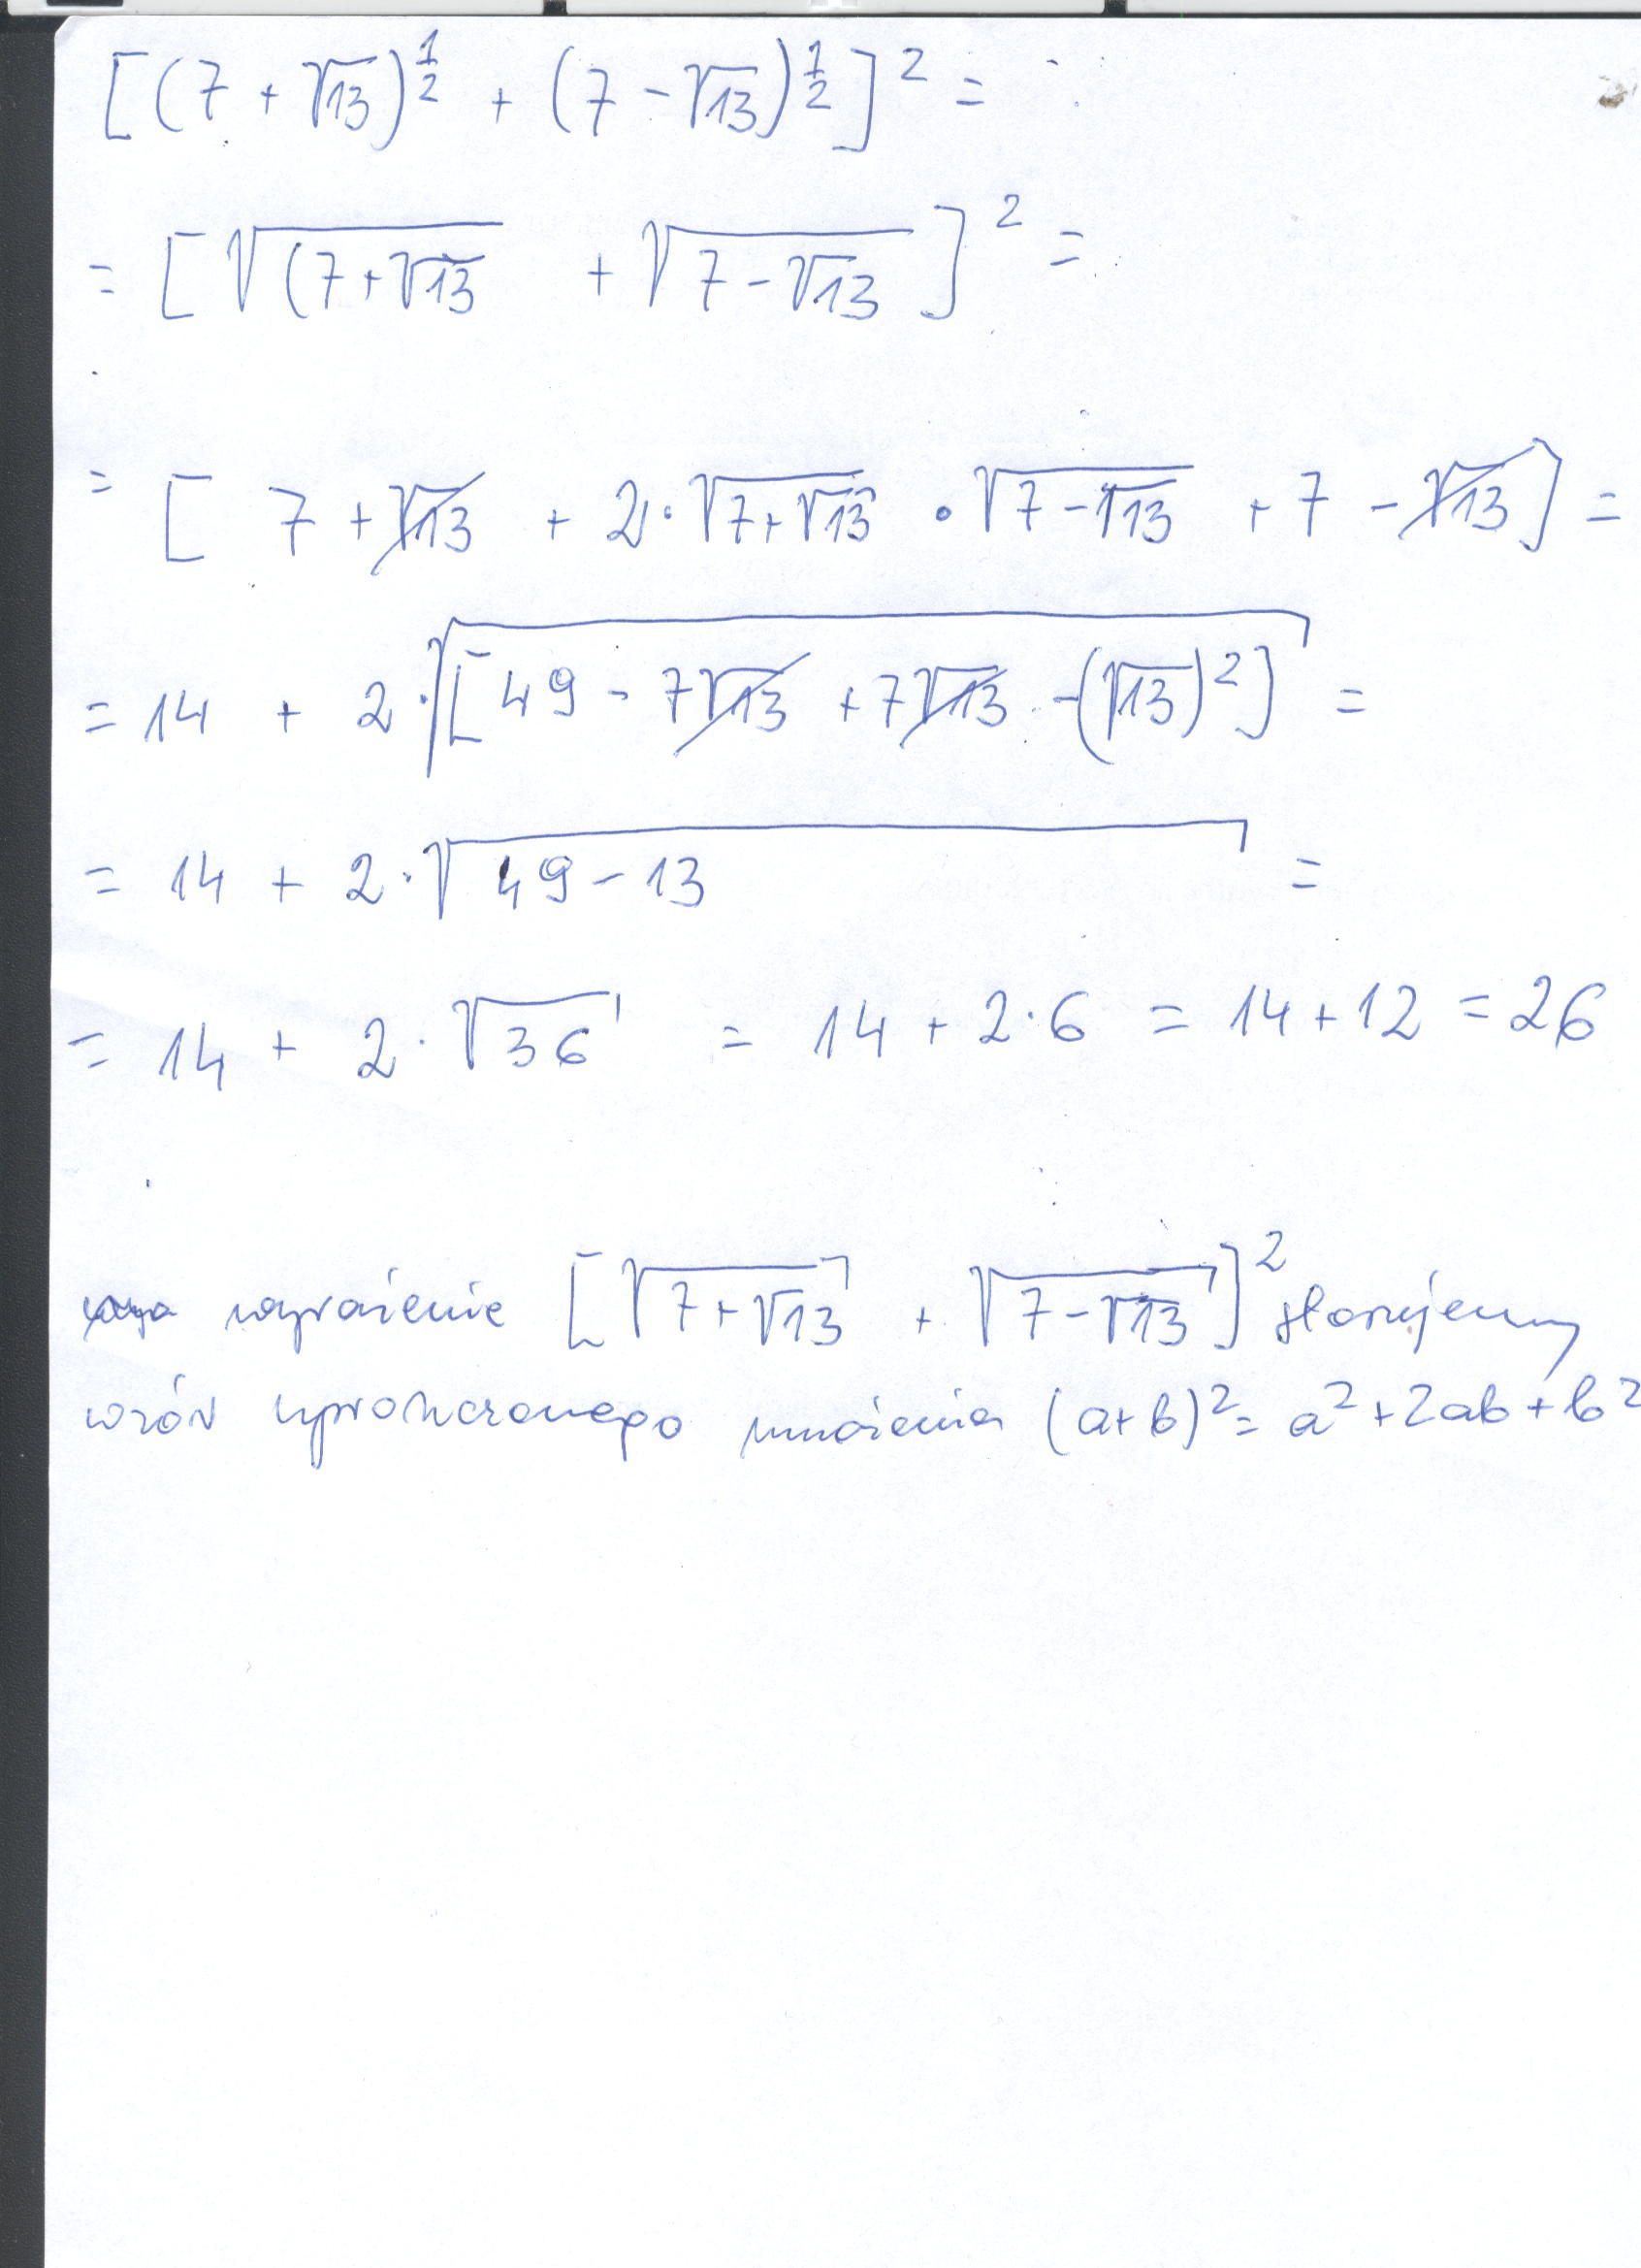 [(7 + √13)^½ + (7 - √13)^½]² =
= [√(7+√13 + √7-√13]² =
= [7 + √13 + 2·√7+√13 · √7-√13 + 7 - √13] =
= 14 + 2·√[49 - 7√13 + 7√13 - (√13)²] =
= 14 + 2·√49-13 =
= 14 + 2·√36 = 14 + 2·6 = 14 + 12 = 26
wyrażenie [√7+√13 + √7-√13]² stosujemy
wzór uproszczonego mnożenia (a+b)² = a² + 2ab + b²